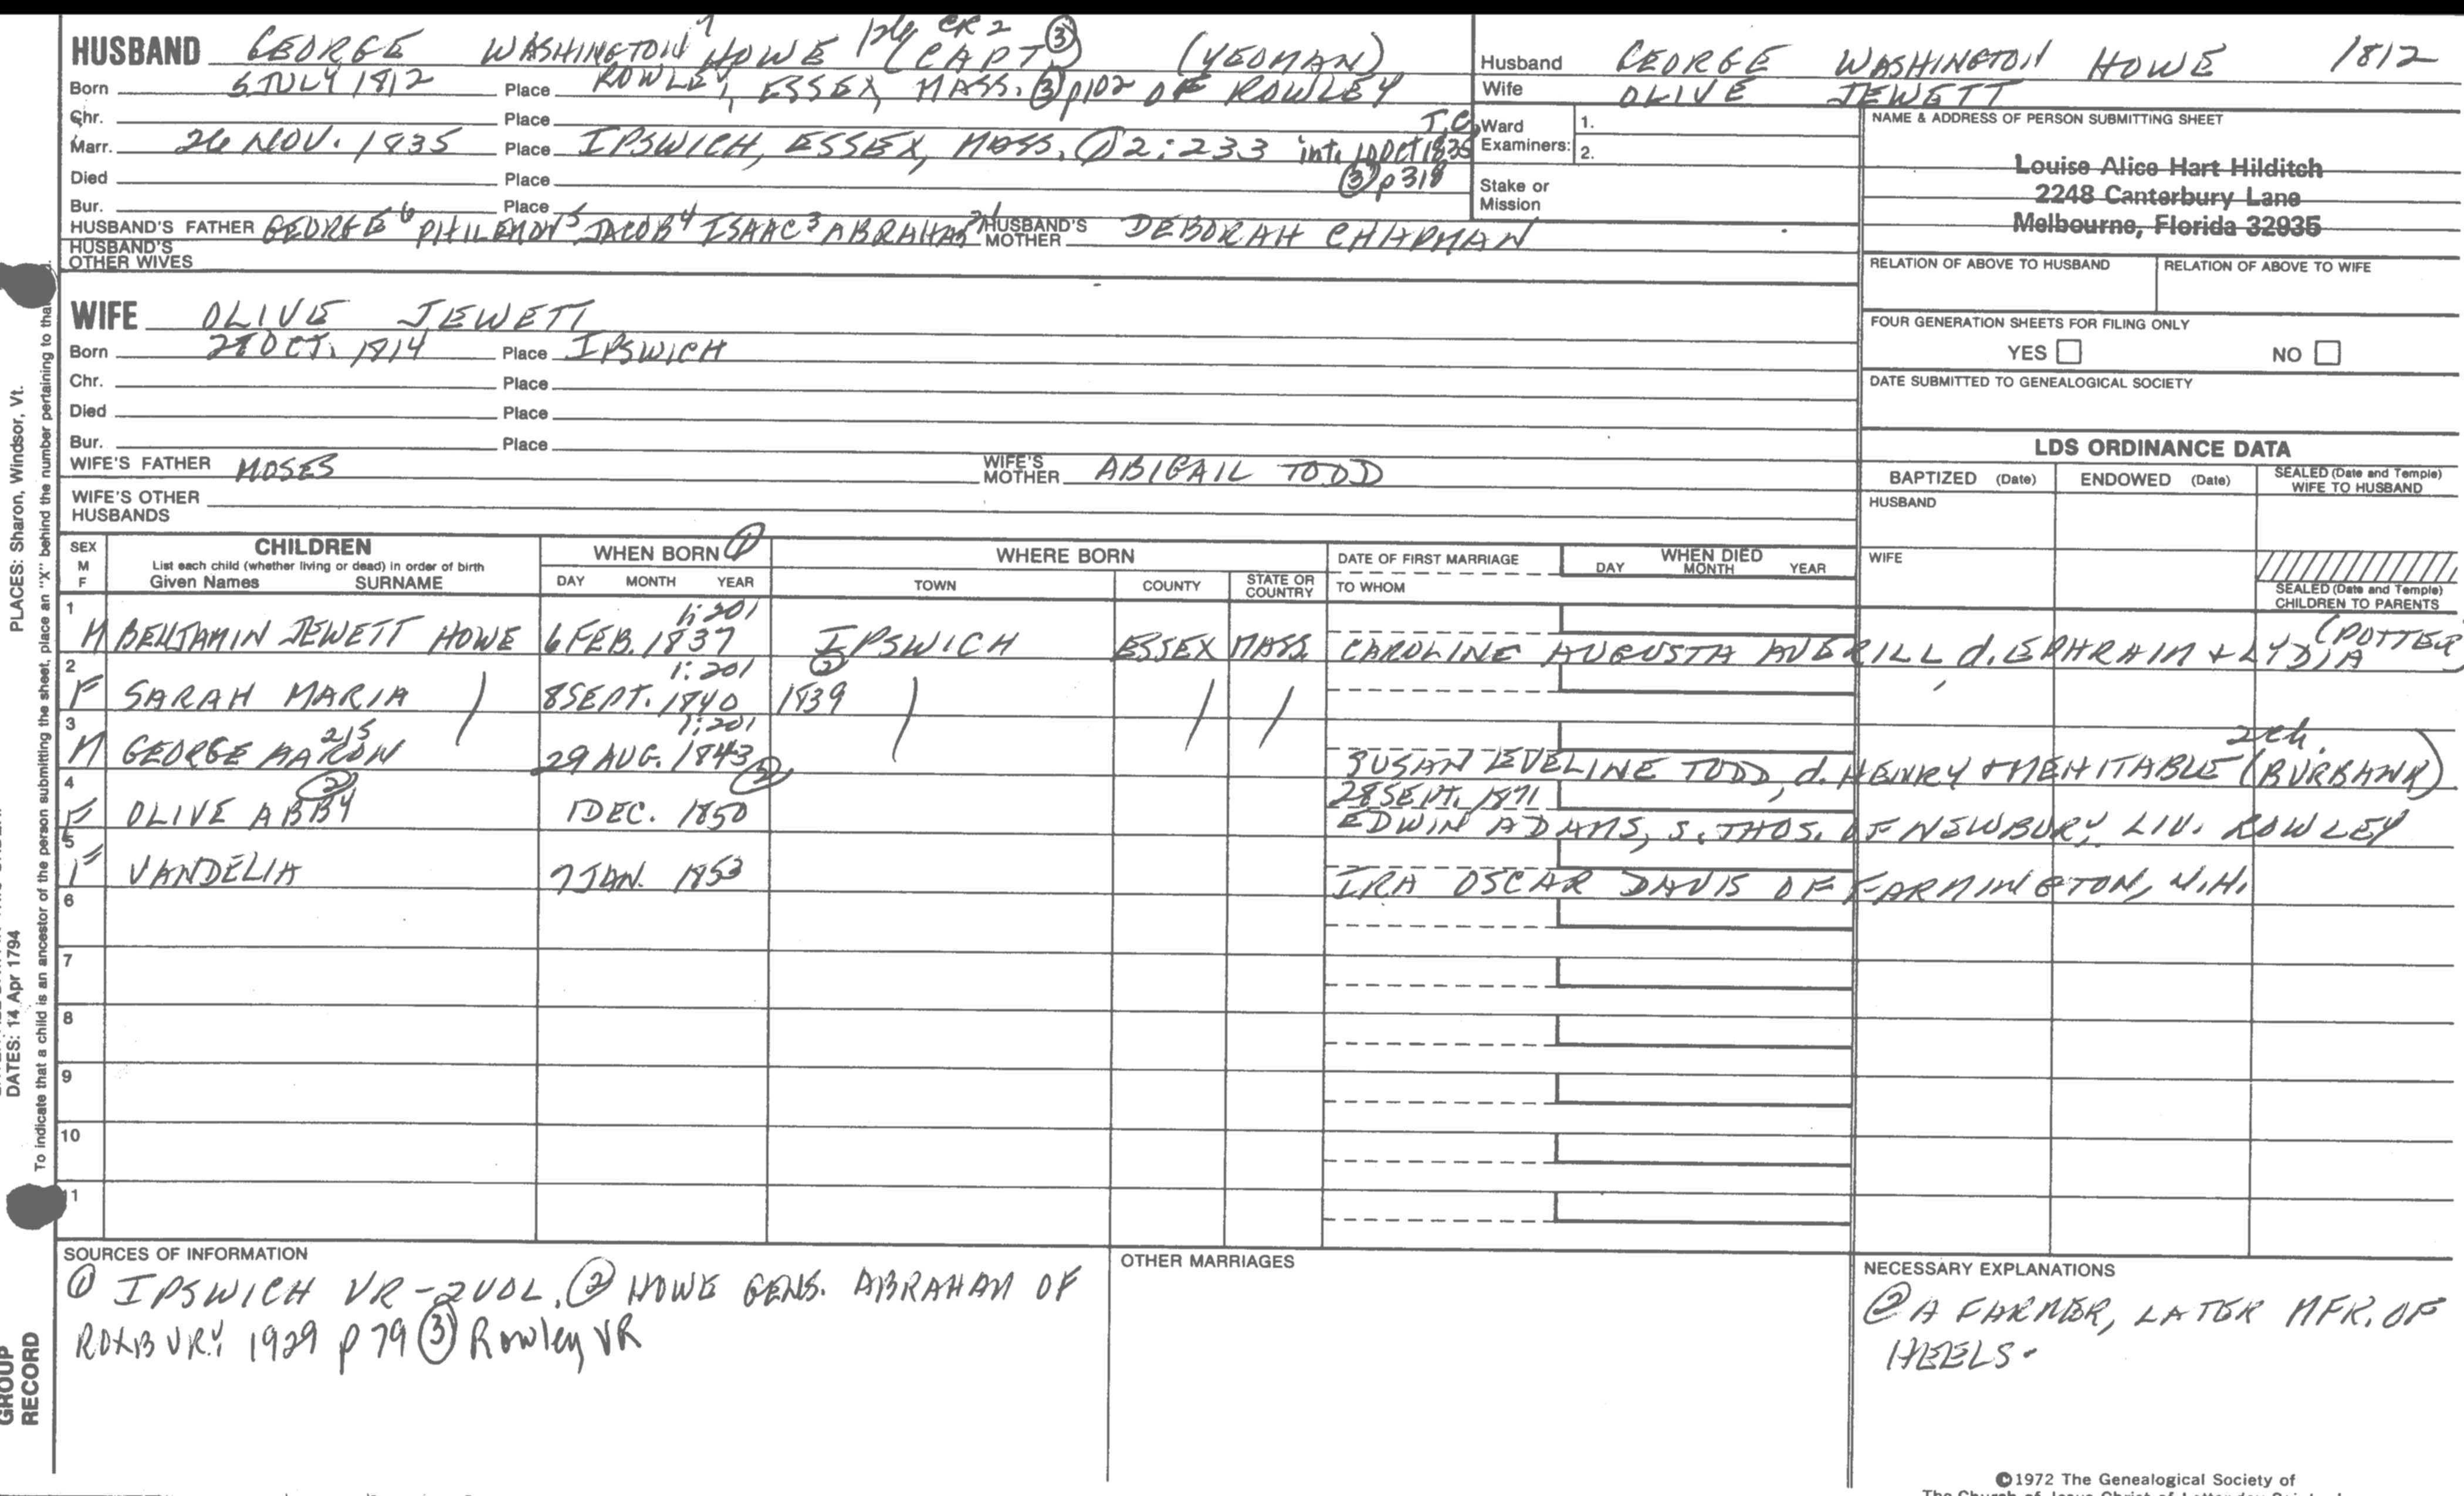 HUSBAND GEORGE WASHINGTON 7 HOWE 126 CR2 (CAPT) ③ (YEOMAN)
Born 6 JULY 1812 Place ROWLEY, ESSEX, MASS. ③ p102 OF ROWLEY
Chr. Place
Marr. 26 NOV. 1835 Place IPSWICH, ESSEX, MASS. ① 2:233 int. 10 Oct 1835
③ p318
Died Place
Bur. Place
HUSBAND'S FATHER GEORGE 6 PHILEMON 5 JACOB 4 ISAAC 3 ABRAHAM HUSBAND'S MOTHER DEBORAH CHAPMAN
HUSBAND'S OTHER WIVES
Husband GEORGE WASHINGTON HOWE 1812
Wife OLIVE JEWETT
Ward Examiners: 1.
2.
Stake or Mission
NAME & ADDRESS OF PERSON SUBMITTING SHEET
Louise Alice Hart Hilditch
2248 Canterbury Lane
Melbourne, Florida 32935
RELATION OF ABOVE TO HUSBAND RELATION OF ABOVE TO WIFE
FOUR GENERATION SHEETS FOR FILING ONLY
YES NO
DATE SUBMITTED TO GENEALOGICAL SOCIETY
WIFE OLIVE JEWETT
Born OCT. 1814 Place IPSWICH
Chr. Place
Died Place
Bur. Place
WIFE'S FATHER MOSES WIFE'S MOTHER ABIGAIL TODD
WIFE'S OTHER HUSBANDS
LDS ORDINANCE DATA
BAPTIZED (Date) ENDOWED (Date) SEALED (Date and Temple) WIFE TO HUSBAND
HUSBAND
WIFE
SEALED (Date and Temple) CHILDREN TO PARENTS
SEX M F CHILDREN WHEN BORN ① WHERE BORN DATE OF FIRST MARRIAGE WHEN DIED
List each child (whether living or dead) in order of birth
Given Names SURNAME DAY MONTH YEAR TOWN COUNTY STATE OR COUNTRY TO WHOM DAY MONTH YEAR
1 M BENJAMIN JEWETT HOWE 6 FEB. 1837 1:201 IPSWICH ESSEX MASS. CAROLINE AUGUSTA AVERILL d. EPHRAIM + LYDIA (POTTER)
2 F SARAH MARIA ) 8 SEPT. 1840 1:201 ② 1839 ) / /
3 M GEORGE AARON 215 29 AUG. 1843 1:201 SUSAN EVELINE TODD, d. HENRY + MEHITABLE (BURBANK) 2 ch.
4 F OLIVE ABBY ② 1 DEC. 1850 ② 28 SEPT. 1871
EDWIN ADAMS, s. THOS. OF NEWBURY, LIV. ROWLEY
5 F VANDELIA 7 JAN. 1853 IRA OSCAR DAVIS OF FARMINGTON, N.H.
6
7
8
9
10
11
SOURCES OF INFORMATION
① IPSWICH VR-2VOL. ② HOWE GENS. ABRAHAM OF
ROXBURY 1929 p 79 ③ Rowley VR
OTHER MARRIAGES
NECESSARY EXPLANATIONS
② A FARMER, LATER MFR. OF
HEELS.
©1972 The Genealogical Society of
PLACES: Sharon, Windsor, Vt.
DATES: 14 Apr 1794
To indicate that a child is an ancestor of the person submitting the sheet, place an "X" behind the number pertaining to that
GROUP
RECORD